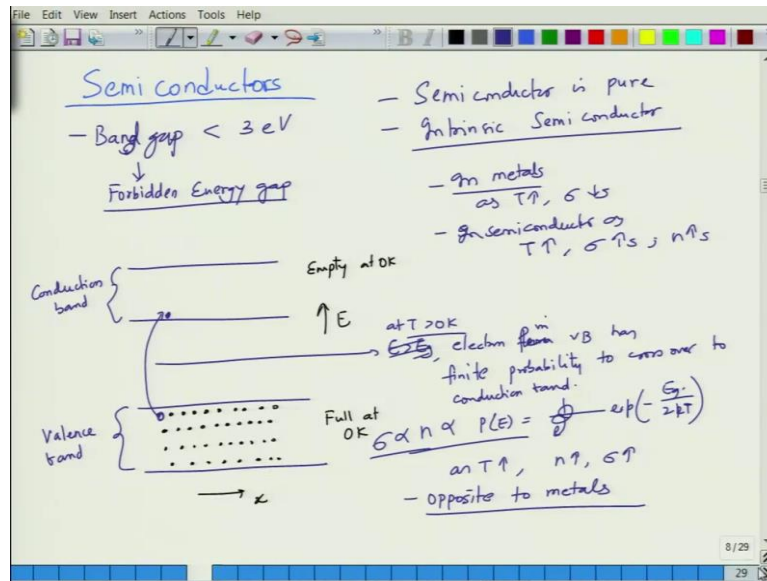 File Edit View Insert Actions Tools Help
Semiconductors
- Band gap < 3 eV
↓
Forbidden Energy gap
- Semiconductor is pure
- Intrinsic Semiconductor
- In metals
as T↑, σ ↓s
- In semiconductors as
T↑, σ ↑s ; n↑s
Conduction band
Empty at 0K
↑E
at T>0K
electron in VB has
finite probability to cross over to
conduction band.
Valence band
Full at 0K
σ ∝ n ∝ P(E) = exp(-Eg/2kT)
as T↑, n↑, σ↑
- opposite to metals
→ x
8/29
29